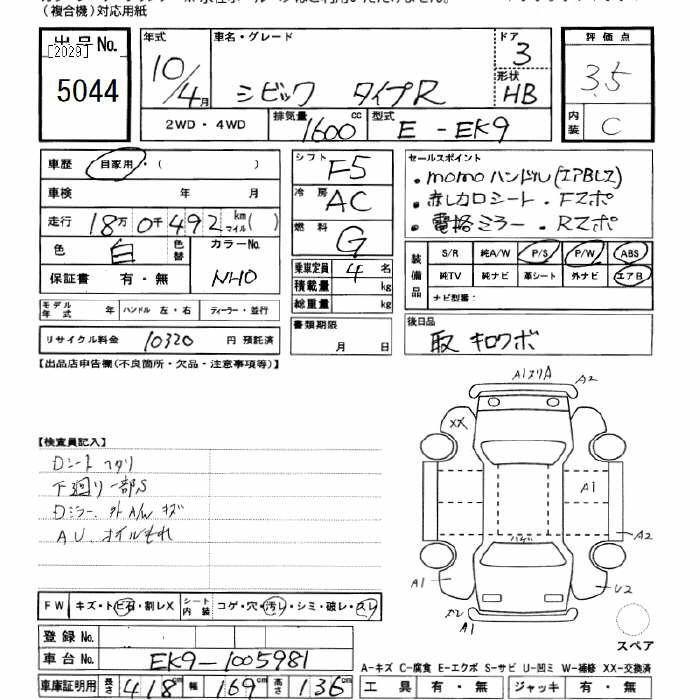 (複合機)対応用紙
出品No.
[2029]
5044
年式
10/4月
車名・グレード
シビック タイプR
ドア
3
形状
HB
評価点
3.5
内装
C
2WD・4WD
排気量
1600cc
型式
E-EK9
車歴 自家用・( )
車検 年 月
走行 18万0千492km マイル( )
色 白 色替
カラーNo. NHO
保証書 有・無
シフト F5
冷房 AC
燃料 G
乗車定員 4名
積載量 kg
総重量 kg
書類期限
月 日
セールスポイント
・momoハンドル(エアBレス)
・赤レカロシート・Fスポ
・電格ミラー・Rスポ
装備品
S/R 純A/W P/S P/W ABS
純TV 純ナビ 革シート 外ナビ エアB
ナビ型番:
モデル年式 年 ハンドル 左・右 ディーラー・並行
リサイクル料金 10320 円 預託済
後日品
取 キロクボ
【出品店申告欄(不良箇所・欠品・注意事項等)】
【検査員記入】
Dシート
下廻り一部S
Dミラー、外A/W キズ
オイルもれ
A2
XX
A1
A2
A1
U2
A1
スペア
FW キズ・トビ石・割レX
シート内装 コゲ・穴・汚レ・シミ・破レ・スレ
登録No.
車台No. EK9-1005981
車庫証明用 長さ 418cm 幅 169cm 高さ 136cm
A-キズ C-腐食 E-エクボ S-サビ U-凹ミ W-補修 XX-交換済
工具 有・無 ジャッキ 有・無